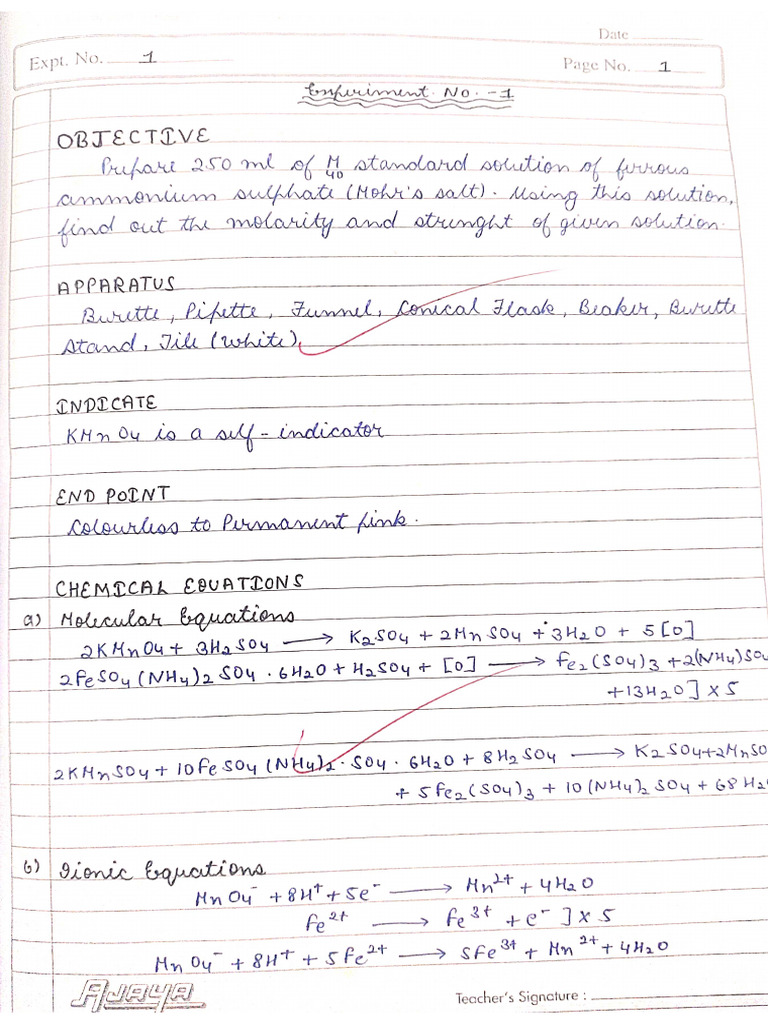 Date
Expt. No. 1
Page No. 1
Experiment No. -1
OBJECTIVE
Prepare 250 ml of M/40 standard solution of ferrous
ammonium sulphate (Mohr's salt). Using this solution,
find out the molarity and strunght of given solution.
APPARATUS
Burette, Pipette, Funnel, Conical Flask, Beaker, Burette
Stand, Tile (White).
INDICATE
KMnO4 is a self-indicator
END POINT
Colourless to Permanent pink.
CHEMICAL EQUATIONS
a) Molecular Equations
2KMnO4 + 3H2SO4 ⟶ K2SO4 + 2MnSO4 + 3H2O + 5[O]
2FeSO4(NH4)2SO4·6H2O + H2SO4 + [O] ⟶ Fe2(SO4)3 + 2(NH4)SO
+13H2O] x 5
2KMnSO4 + 10FeSO4(NH4)2·SO4·6H2O + 8H2SO4 ⟶ K2SO4+2MnSO
+ 5Fe2(SO4)3 + 10(NH4)2SO4 + 68H2O
b) Iionic Equations
MnO4⁻ + 8H⁺ + 5e⁻ ⟶ Mn²⁺ + 4H2O
Fe²⁺ ⟶ Fe³⁺ + e⁻ ] x 5
MnO4⁻ + 8H⁺ + 5Fe²⁺ ⟶ 5Fe³⁺ + Mn²⁺ + 4H2O
AJAYA
Teacher's Signature :